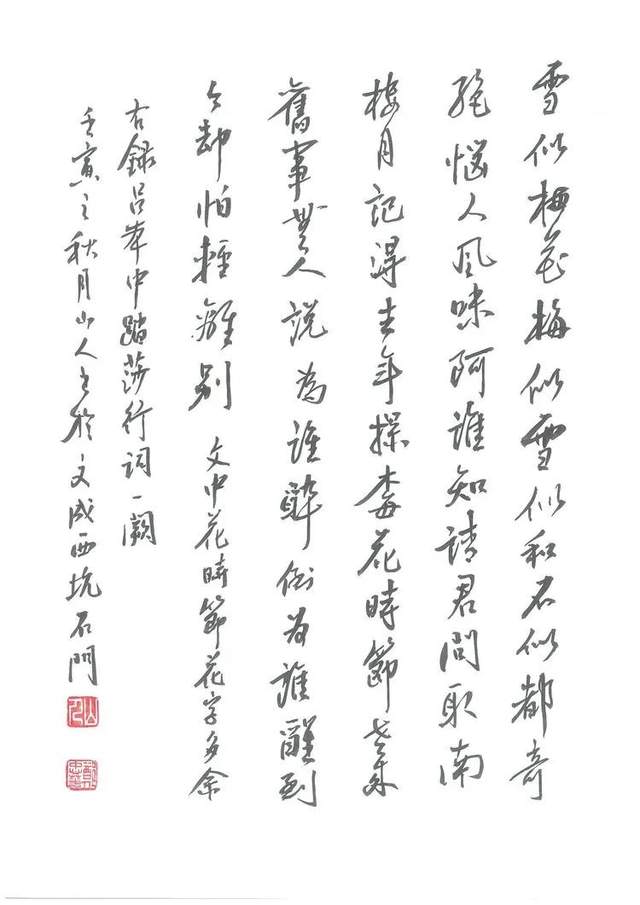 雪似梅花梅似雪似和不似都奇
絕惱人风味阿誰知請君問取南
樓月記得去年探梅花時節老来
舊事無人説為誰醉倒為誰醒到
今却怕輕離别 文中花時節花字多余
右録吕本中踏莎行詞一闕
壬寅之秋月山人书於文成西坑石門
山人